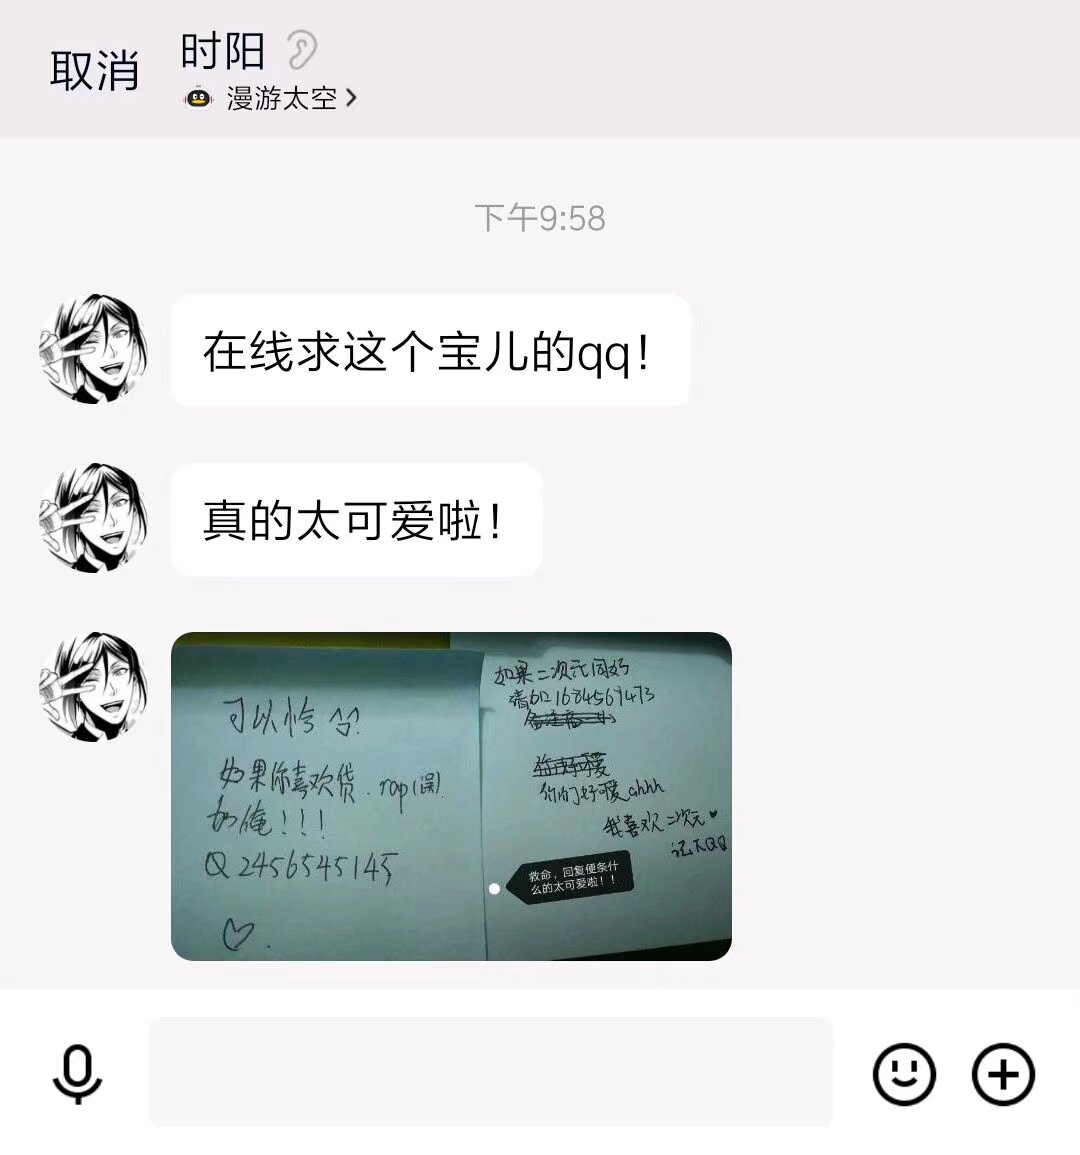 取消
时阳
漫游太空
下午9:58
在线求这个宝儿的qq！
真的太可爱啦！
可以恰
如果你喜欢货.rap(误)
加俺！！！
Q 2456545145
如果二次元同好
请加1684569473
你们好可爱ahhh
我喜欢二次元
记下QQ
救命，回复便条什
么的太可爱啦！！